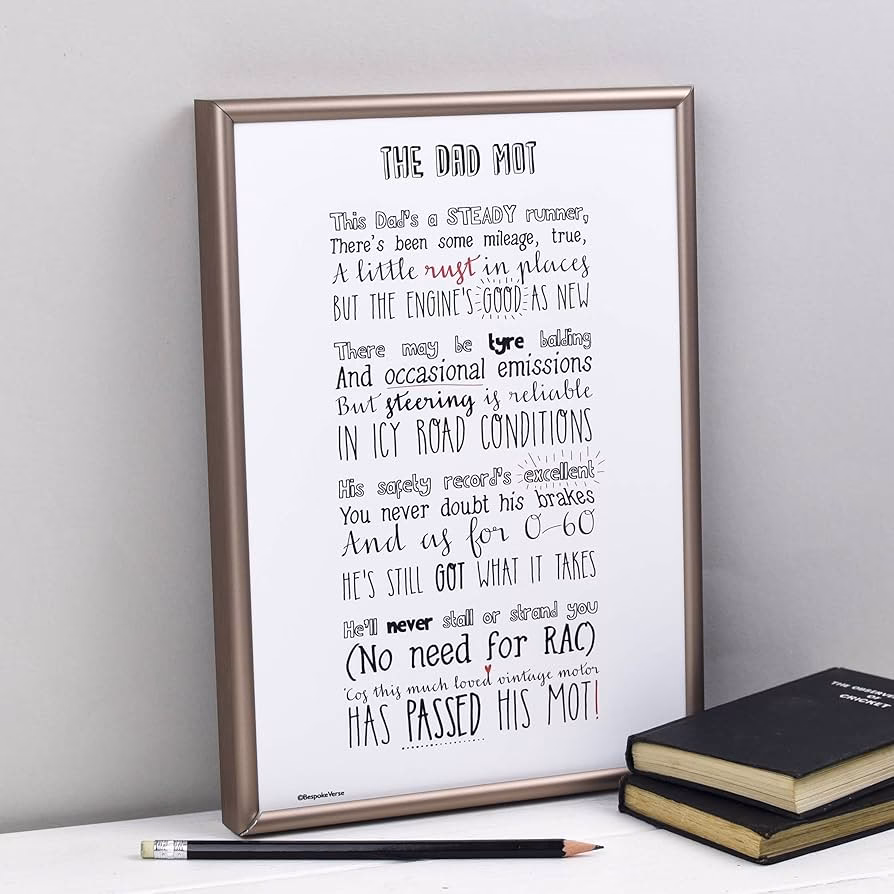 THE DAD MOT
This Dad's a STEADY runner,
There's been some mileage, true,
A little rust in places
BUT THE ENGINE'S GOOD AS NEW
There may be tyre balding
And occasional emissions
But steering is reliable
IN ICY ROAD CONDITIONS
His safety record's excellent
You never doubt his brakes
And as for 0-60
HE'S STILL GOT WHAT IT TAKES
He'll never stall or strand you
(No need for RAC)
'Cos this much loved vintage motor
HAS PASSED HIS MOT!
©BespokeVerse
THE OBSERVER
OF
CRICKET